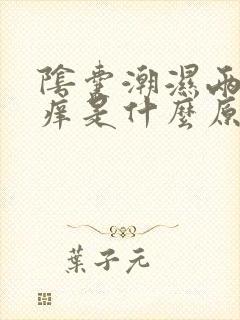 陰囊潮濕兩
痒是什麼原
葉子元